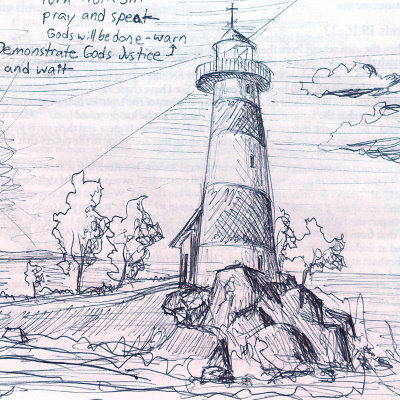 pray and speak
Gods will be done - warn
Demonstrate Gods Justice ↑
and wait